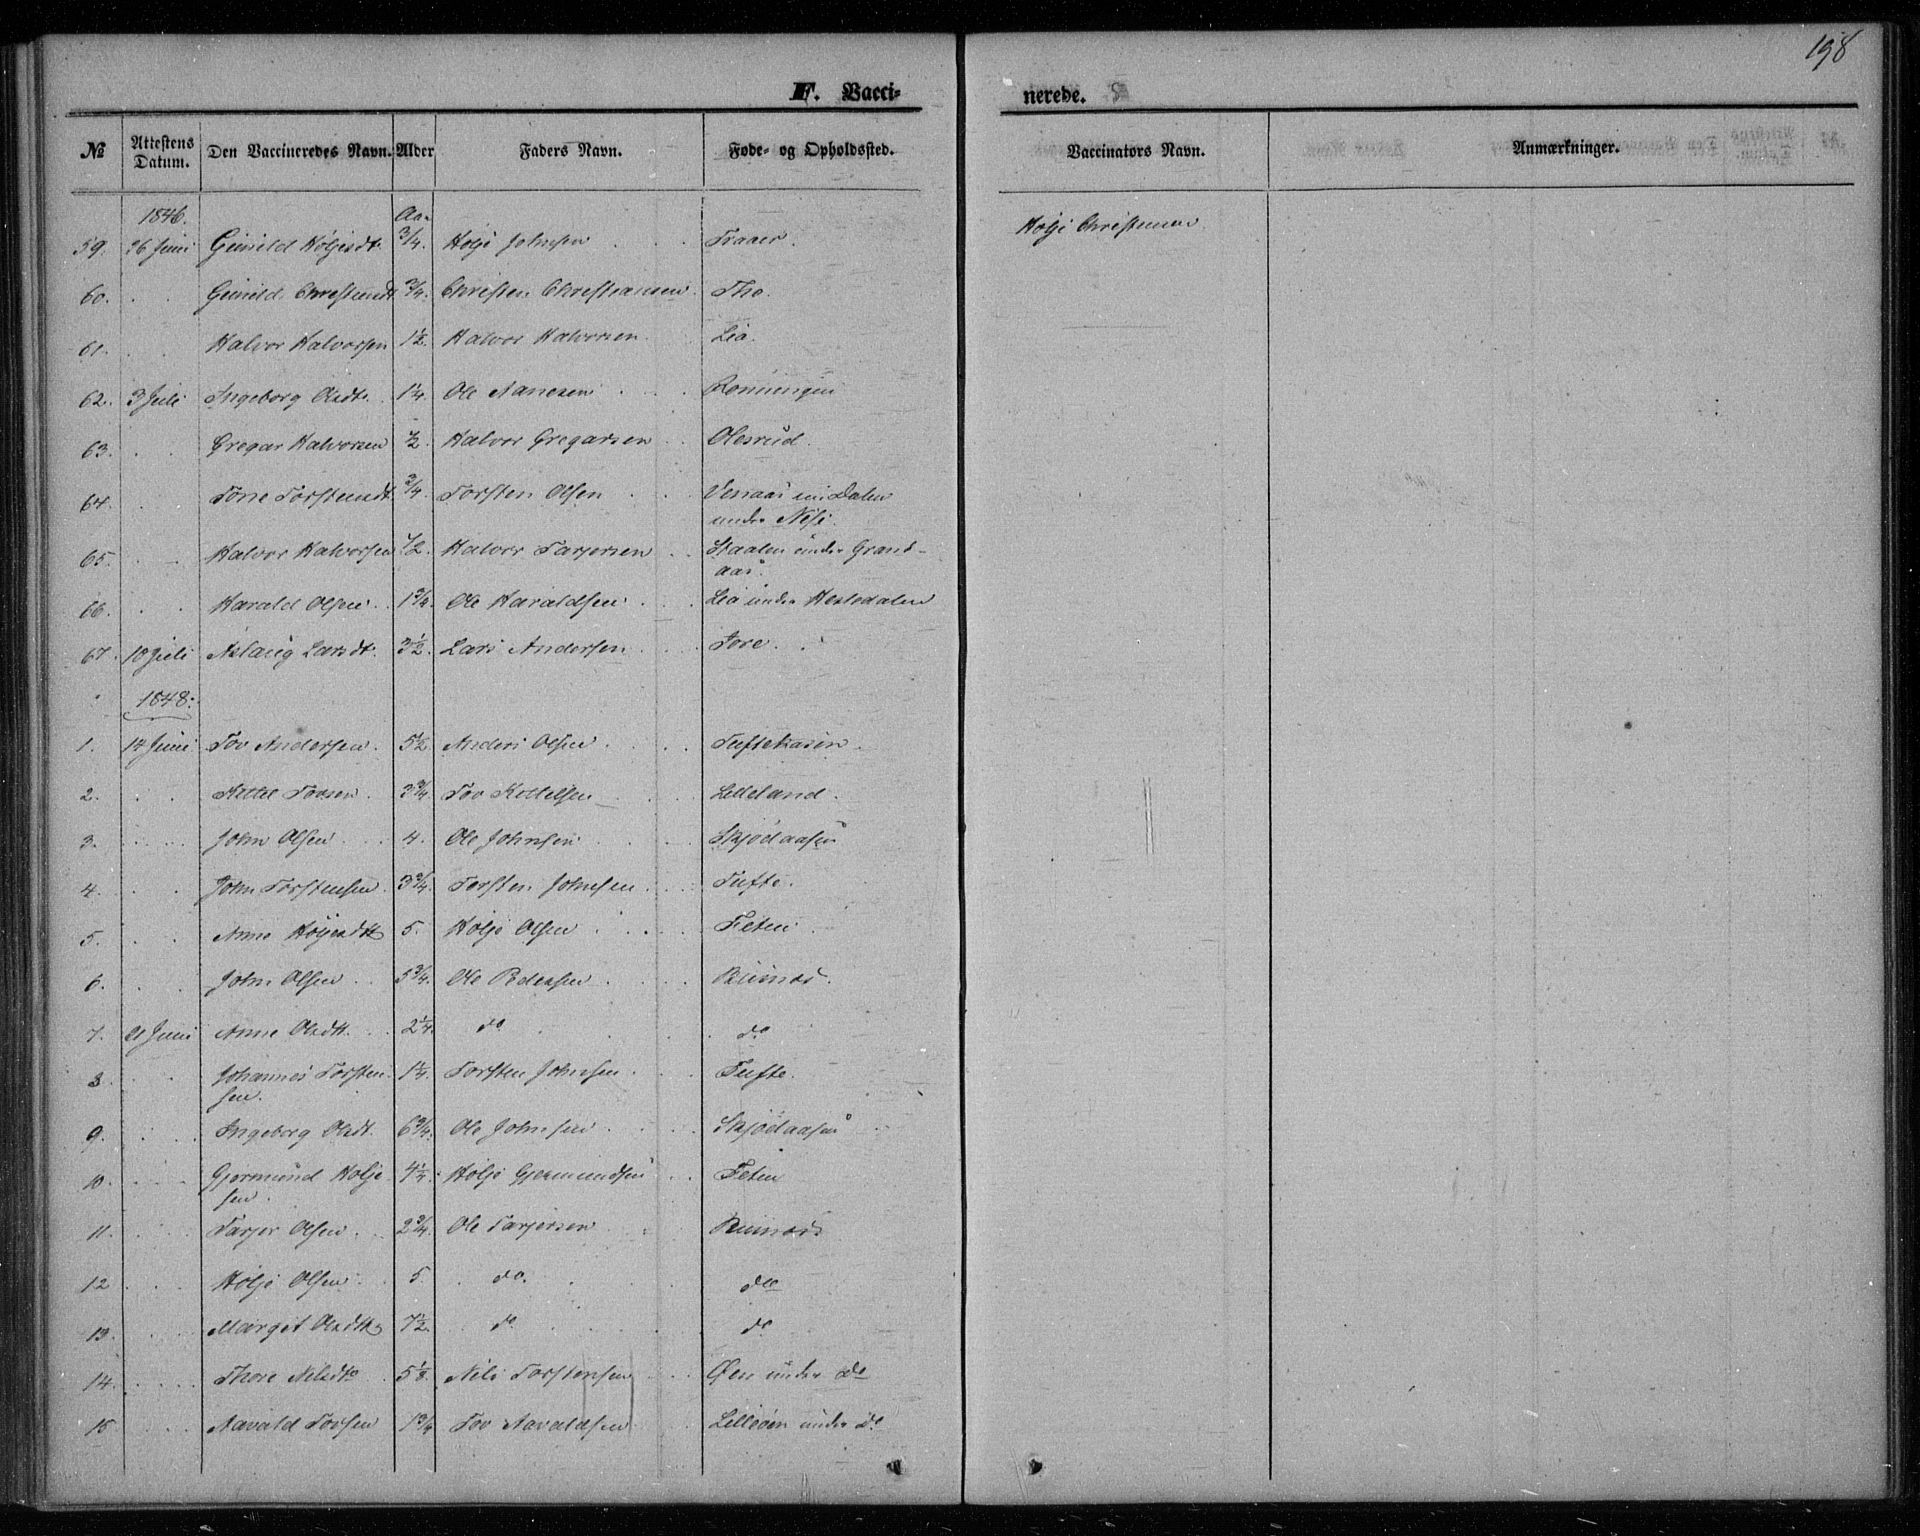 198
F. Vacci-
nerede.
№ Attestens Datum. Den Vaccineredes Navn. Alder Faders Navn. Føde- og Opholdssted. Vaccinators Navn. Anmærkninger.
1846. Aar
59. 26 Juni Gunild Høljesdt. 3/4. Hølje Johnsen Traaen. Hølje Christensen
60. Gunild Christensdt 3/4. Christen Christiansen Tho.
61. Halvor Halvorsen 1½. Halvor Halvorsen Lia.
62. 3 Juli Ingeborg Olsdt. 1¼. Ole Aanesen Rønningen
63. Gregar Halvorsen ½. Halvor Gregarsen Olesrud.
64. Tone Torstensdt. 3/4. Torsten Olsen Venaas i Dalen
under Nese.
65. Halvor Halvorsen ½. Halvor Tarjersen Staalen under Grand-
aas.
66. Harald Olsen 1¾. Ole Haraldsen Lia under Hestedalen
67. 10 Juli Aslaug Larsdt. 3½. Lars Andersen Fore.
1848.
1. 14 Juni Tov Andersen. 5½ Anders Olsen Tuftekasen.
2. Kittel Tovsen. 3¾. Tov Kittelsen Lilleland.
3. John Olsen 4. Ole Johnsen Skjødaasen
4. John Torstensen. 3¾. Torsten Johnsen Tufte.
5. Anne Høljesdtr 5. Hølje Olsen Teten.
6. John Olsen 5¾. Ole Pedersen Rusnæs.
7. 21 Juni Anne Olsdtr. 2¼. do do
8. Johannes Torsten- 1¼. Torsten Johnsen Tufte.
sen.
9. Ingeborg Olsdt. 6¾. Ole Johnsen Skjødaasen
10. Gjermund Hølje- 4¼. Hølje Gjermundsen Teten
sen.
11. Tarjer Olsen. 2¾. Ole Tarjersen Rusnæs
12 Hølje Olsen 5. do. do
13. Margit Olsdtr 7½. do do
14. Thore Nilsdtr 5⅛. Nils Torstensen Øen under do
15 Aavald Tovsen 1¾ Tov Aavaldsen Lilleøen under do